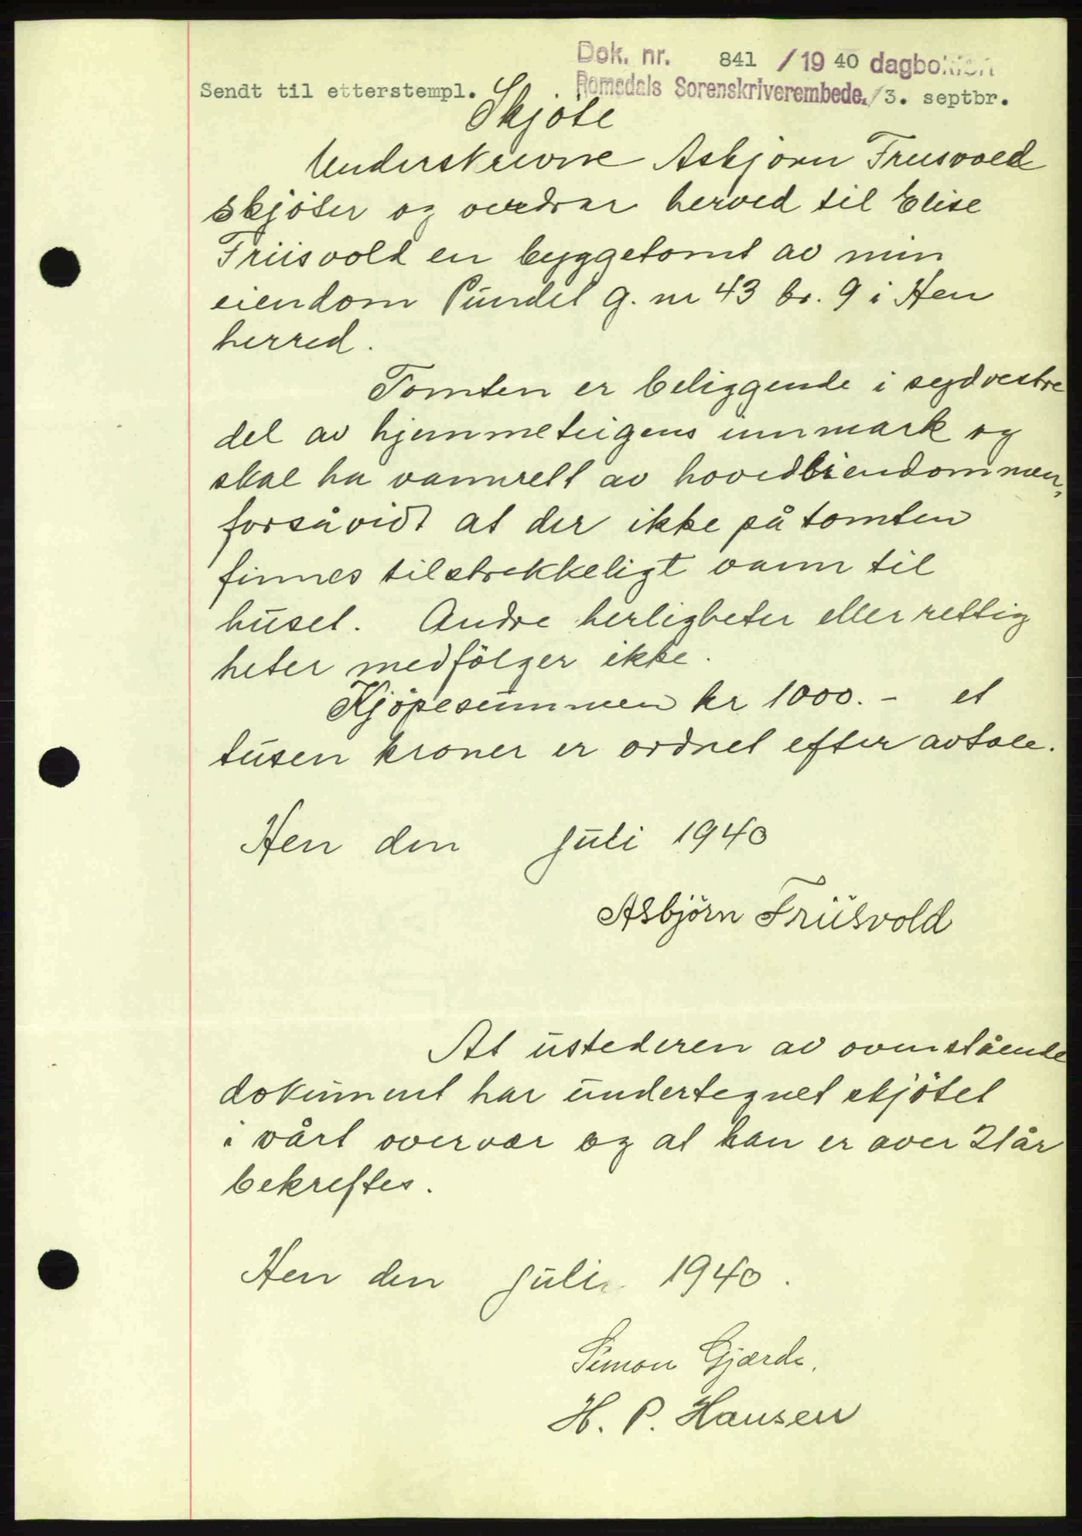 Dok. nr. 841 /19 40 dagboken
Sendt til etterstempl. Romsdals Sorenskriverembede. /3. septbr.
Skjøte
Underskrevne Asbjørn Friisvold
skjöter og overdrar herved til Elise
Friisvold en byggetomt av min
eiendom g. nr 43 br. 9 i Hen
herred.
Tomten er beliggende i sydvestre
del av hjemmeteigens innmark og
skal ha vannrett av hovedeiendommen,
forsåvidt at der ikke på tomten
finnes tilstrekkeligt vann til
huset. Andre herligheter eller rettig
heter medfölger ikke.
Kjöpesummen kr 1000.- et
tusen kroner er ordnet efter avtale.
Hen den juli 1940
Asbjörn Friisvold
At utstederen av ovenstående
dokument har undertegnet skjötet
i vårt overvær og at han er over 21 år
bekreftes.
Hen den juli 1940.
Simon Gjærde.
H. P. Hansen